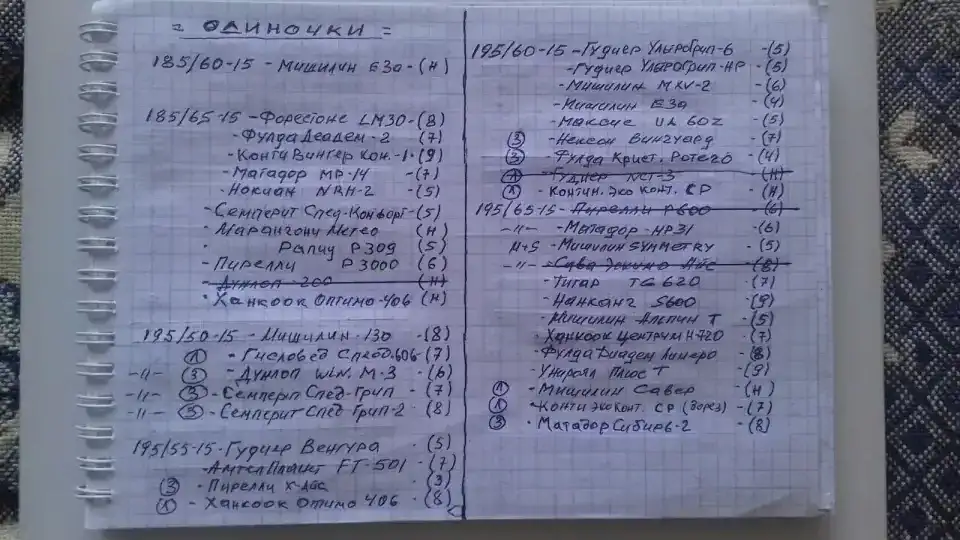 = ОДИНОЧКИ =
185/60-15 - Мишилин Е3а - (Н)
185/65-15 - Фаерстоне LM30 - (8)
- Фулда Деадем - 2 (7)
- Конти Винтер Кон. - 1 · (9)
- Матадор МР-14 - (7)
- Нокиан NRH-2 - (5)
- Семперит Спед-Конфорт - (5)
· Марангони Метео (Н)
· Рапид Р309 (5)
- Пирелли Р3000 (6)
- Дунлоп - 200 (Н)
· Ханкоок Оптимо - 406 (Н)
195/50-15 - Мишилин - 130 - (8)
① - Гиславед Спеед. 606 - (7)
-11- ③ - Дунлоп WiN. М-3 - (6)
-11- ③ - Семперит Спед-Грип - (7)
-11- ③ - Семперит Спед Грип-2 - (8)
195/55-15 - Гудиер Вентура · (5)
- Амтел Планет FT-501 - (7)
③ - Пирелли Х-Айс (9)
① - Ханкоок Оптимо 406 - (8)
195/60-15 - Гудиер Ультрагрип-6 - (5)
- Гудиер Ультрагрип-НР - (5)
- Мишилин МХV-2 - (6)
- Мишилин Е3а - (4)
- Максис UA 602 - (5)
③ - Нексен Вингуард - (7)
③ - Фулда Крист. Ротего - (4)
① - Гудиер NCT-3 - (Н)
① - Контин. Эко Конт. СР - (Н)
195/65-15 - Пирелли Р600 - (6)
-11- - Матадор - НР31 - (6)
M+S - Мишилин SYMMETRY - (5)
-11- - Сава Эскимо Айс - (8)
- Тигар TG 620 - (7)
- Нанканг S600 - (9)
- Мишилин Альпин Т - (5)
· Ханкоок Центрум Н720 - (7)
- Фулда Диадем Линеро - (8)
- Унироял Плюс Т - (9)
① - Мишилин Савер - (Н)
① · Конти Эко Конт. СР (Порез) - (7)
③ · Матадор Сибирь-2 - (8)